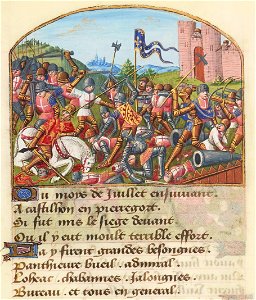 Du moys de Juillet ensuivant.
A castillon en pieregort.
Si fut mis le siege devant
Ou il y eut moult terrible effort.
La y firent grandes besongnes.
Panthieure bueil. admiral.
Loheac. chabannes. Jalongnes.
Bureau. et tous en general.